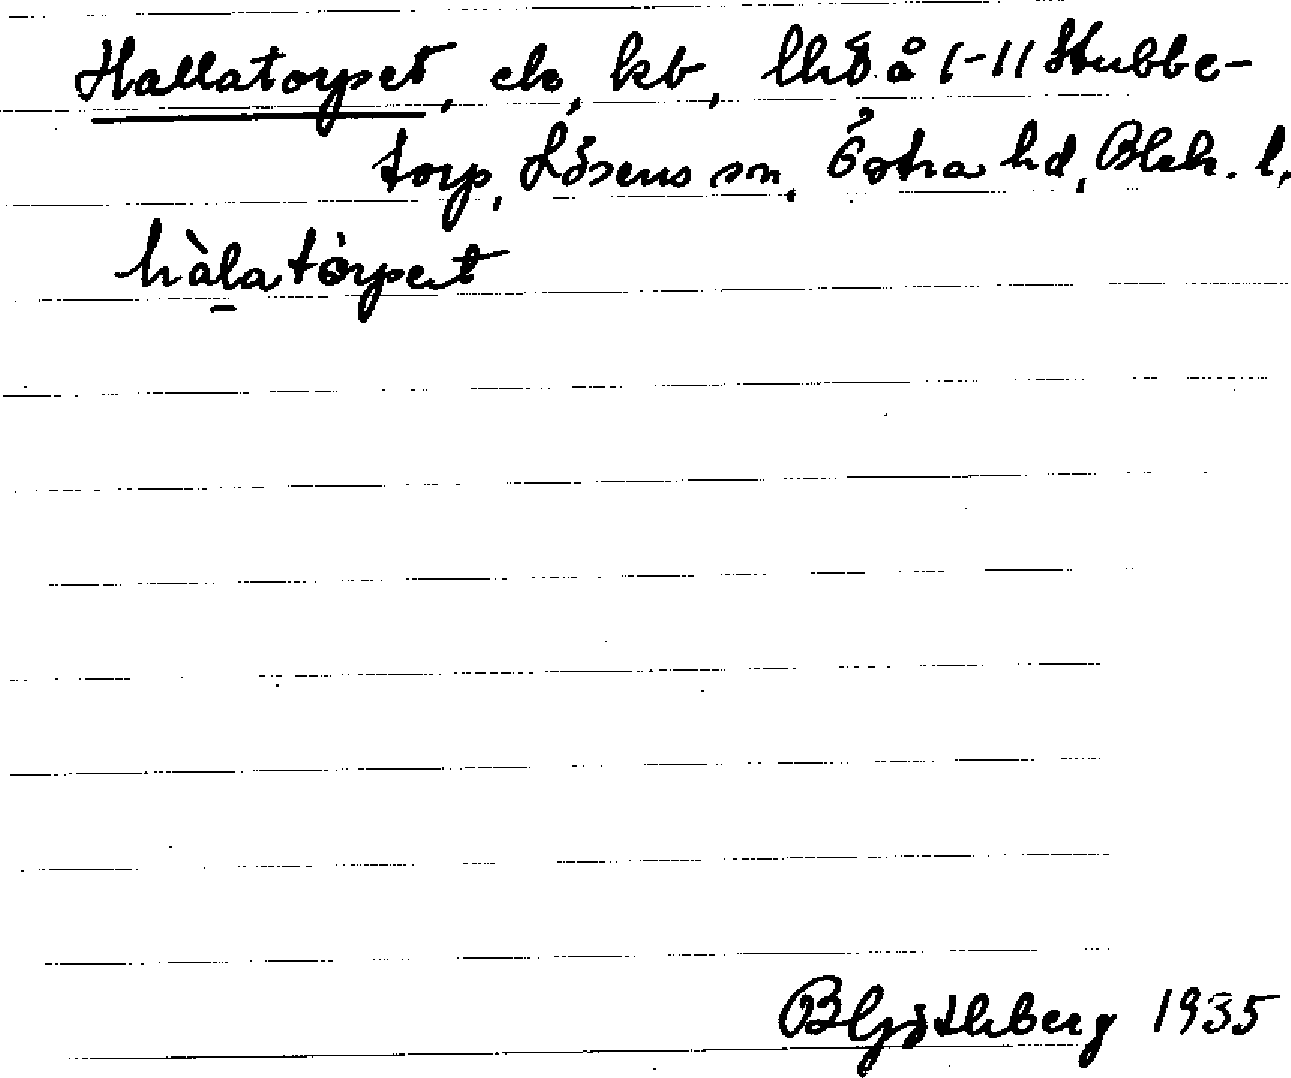 Hallatorpet, eb, kb, lht å 1-11 Stubbe-
torp, Lösens sn, Östra hd, Blek. l.
hàlatòrpet
1935